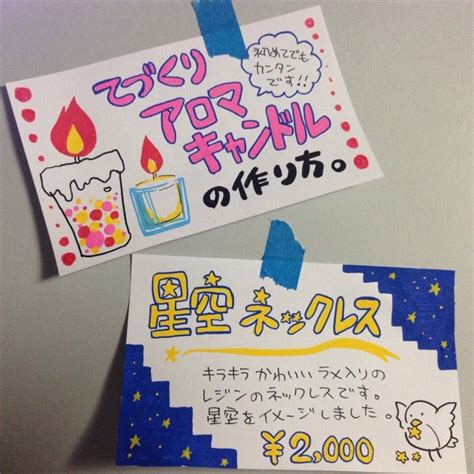 てづくり
アロマ
キャンドル
の作り方。
初めてでも
カンタン
です!!
星空ネックレス
キラキラかわいいラメ入りの
レジンのネックレスです。
星空をイメージしました。
¥2,000